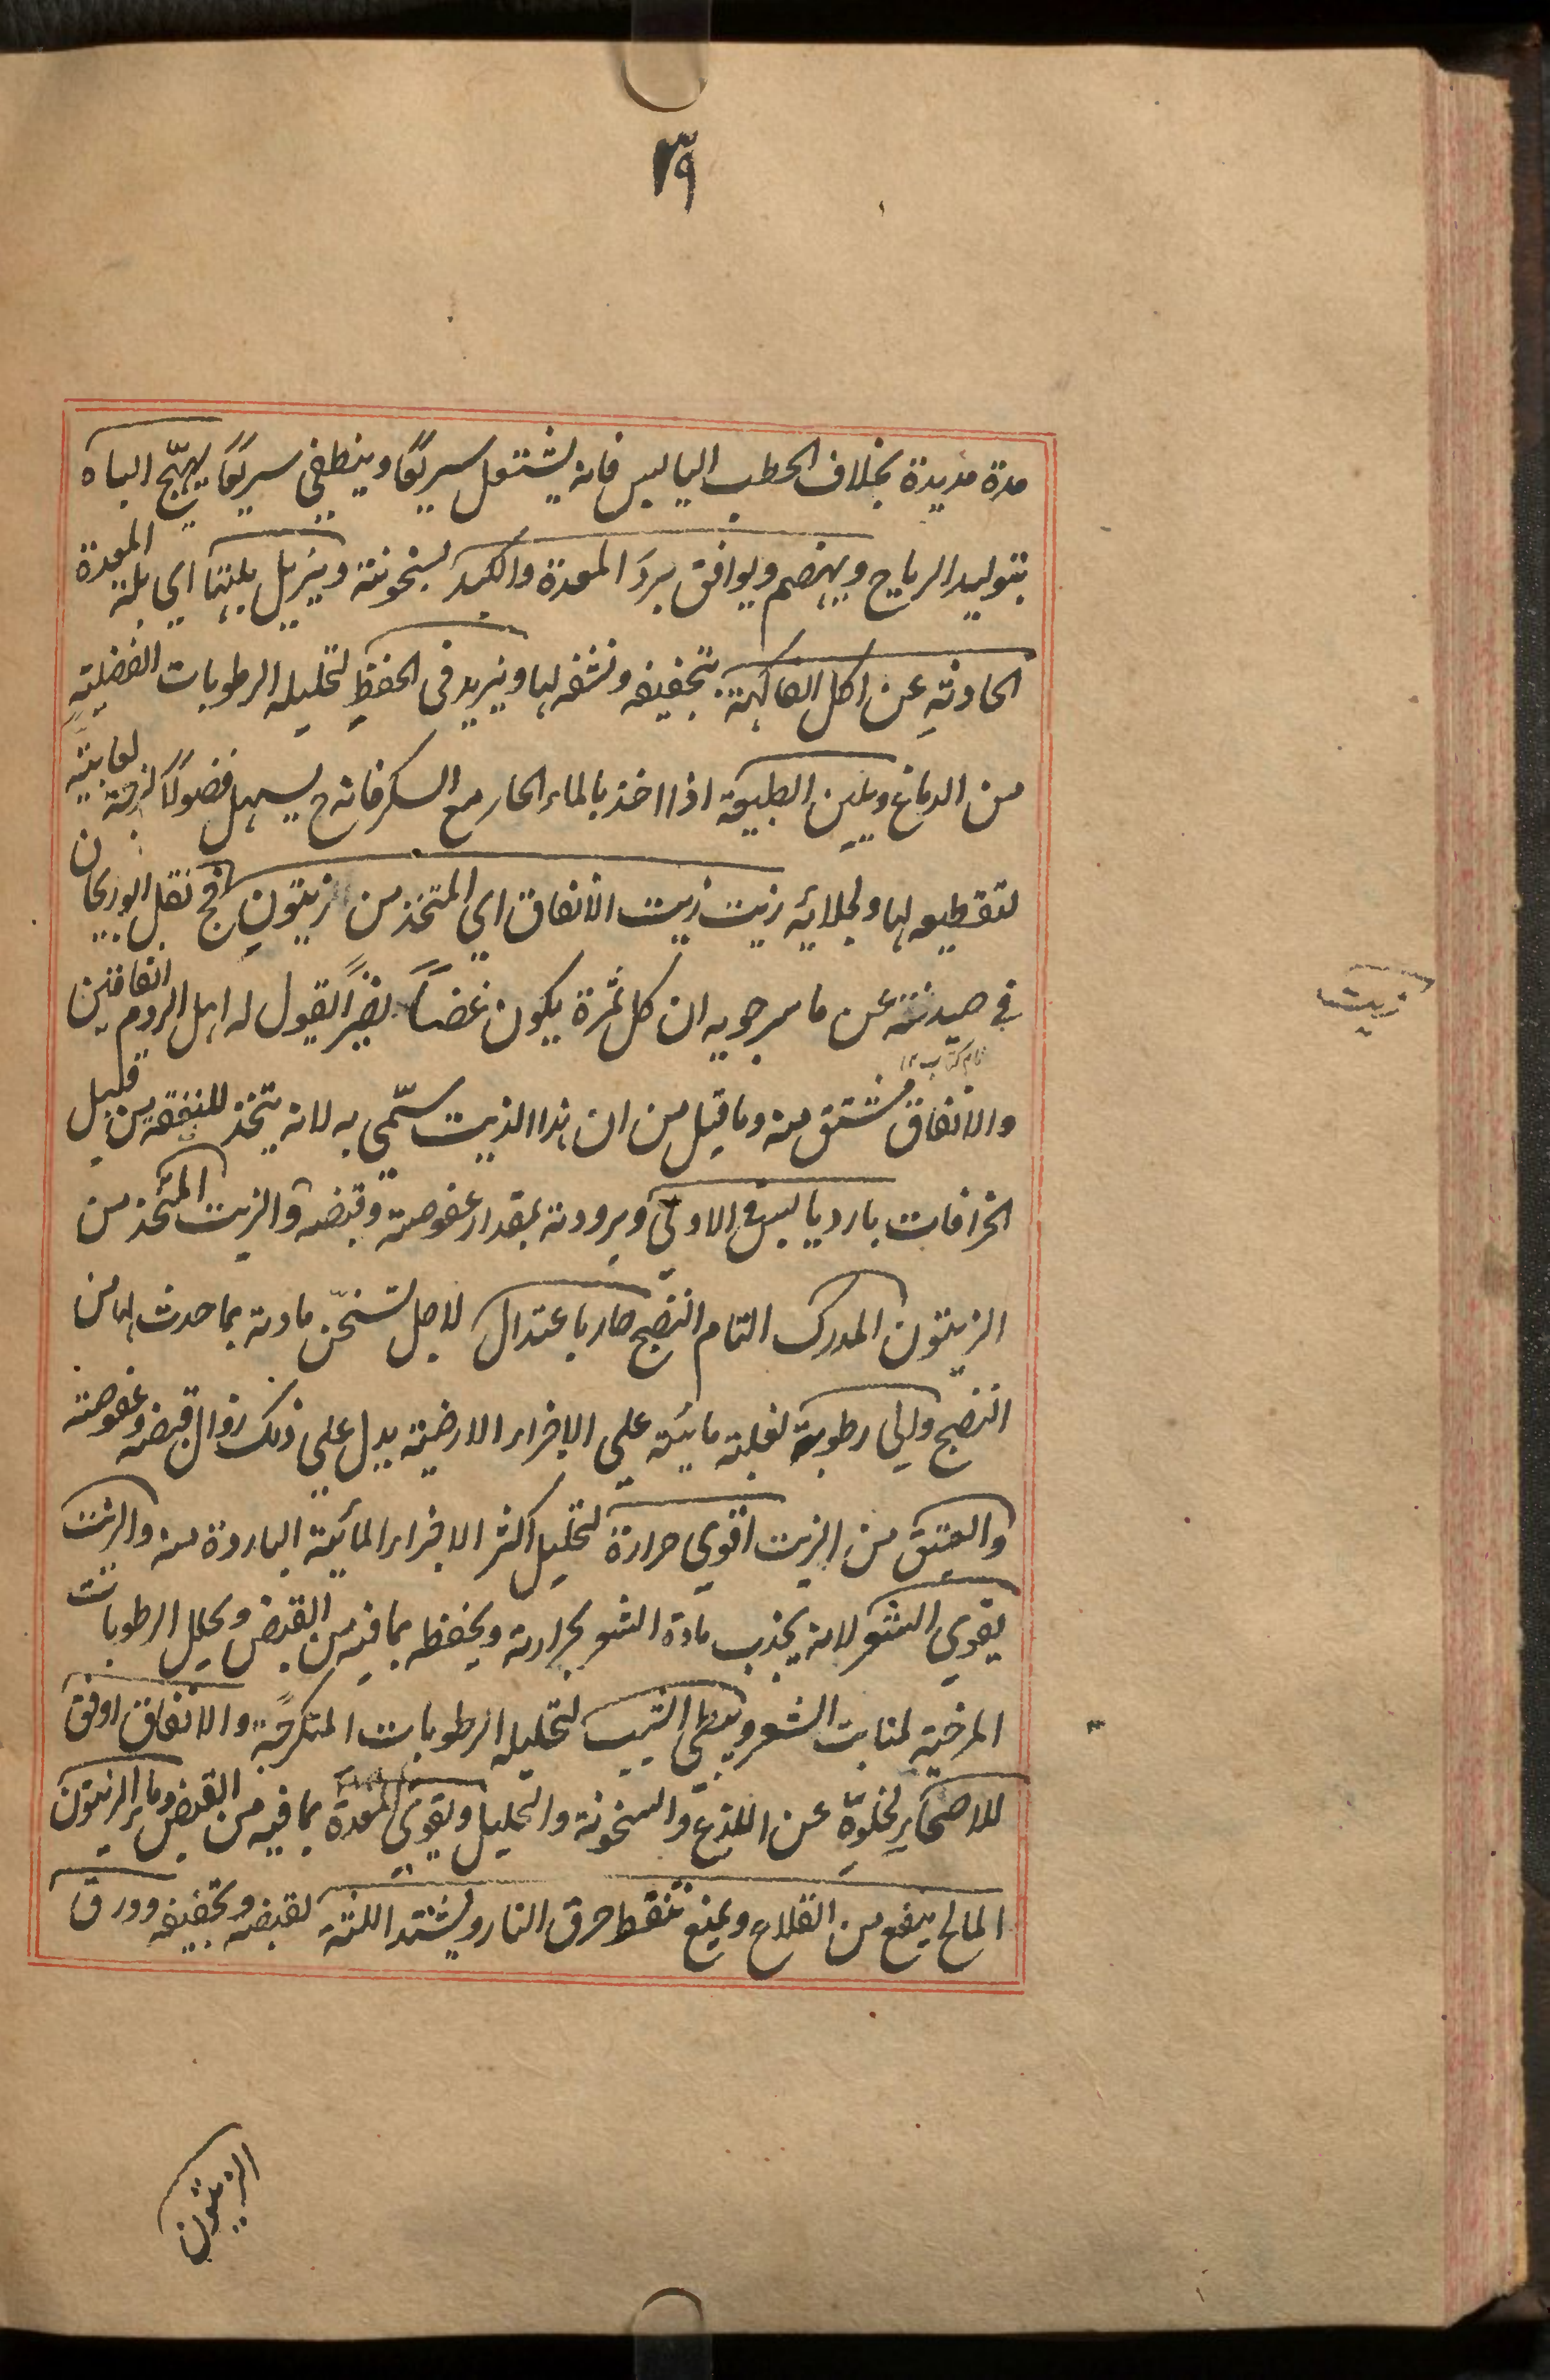 ٣٩
مدة مديدة بخلاف الحطب اليابس فانه يشتعل سريعًا وينطفي سريعًا يهيّج الباه
بتوليد الرياح ويهضم ويوافق بردَ المعدة والكبد لسخونته ويزيل بلتها اي بلة المعدة
الحادثةِ عن اكل الفاكهة بتجفيفه ونشفه لها ويزيد في الحفظِ لتحليله الرطوبات الفضليةِ
من الدماغ ويلين الطبيعة اذا اخذ بالماء الحار مع السكر فانه ح يسهل فضولًا لزجة لعابيّة
لتقطيعه لها ولجلائه زيت زيت الانفاق اي المتخذ من زيتونٍ فج نقل ابوريحان
في صيدنته عن ماسرجويه ان كل ثمرة يكون غضاً نضراً يقول له اهل الروم انفاقين
نام كتاب ١٢
والانفاق مشتق منه وما قيل من ان هذا الذيت سمّي به لانه يتخذ للنفقه من قبيل
الخرافات بارد يابس في الاولي وبرودته بمقدار عفوصته وقبضه والزيت المتخذ من
الزيتون المدرك التام النضج حار باعتدال لاجل تسخّن مادته بما حدث لها من
النضج والي رطوبة لغلبة مائيته علي الاجزاء الارضية يدل علي ذلك زوال قبضه وعفوصته
والعتيق من الزيت اقوي حرارة لتحليل اكثر الاجزاء المائية الباردة منه والزيت
يقوي الشعر لانه يجذب مادة الشعر بحرارته ويحفظه بما فيه من القبض ويحلل الرطوبات
المرخية لمنابت الشعر ويبطي الشيب لتحليله الرطوبات المتكرجة والانفاق اوفق
للاصحاء لخلوّه عن اللذع والسخونة والتحليل ويقوي المعدة بما فيه من القبض وماء الزيتون
المالح ينفع من القلاع ويمنع تنفط حرق النار ويشتد اللثة لقبضه وتجفيفه وورق
زيت
الزيتون